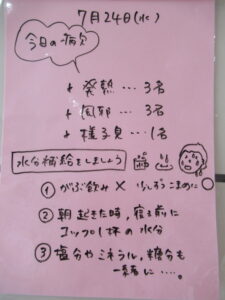 7月24日(水)
今日の病欠
+ 発熱…3名
+ 風邪…3名
+ 様子見…1名
水分補給をしましょう
① がぶ飲み × 少しずつこまめに○
② 朝起きた時、寝る前に
コップ1杯の水分
③ 塩分やミネラル、糖分も
一緒に….。